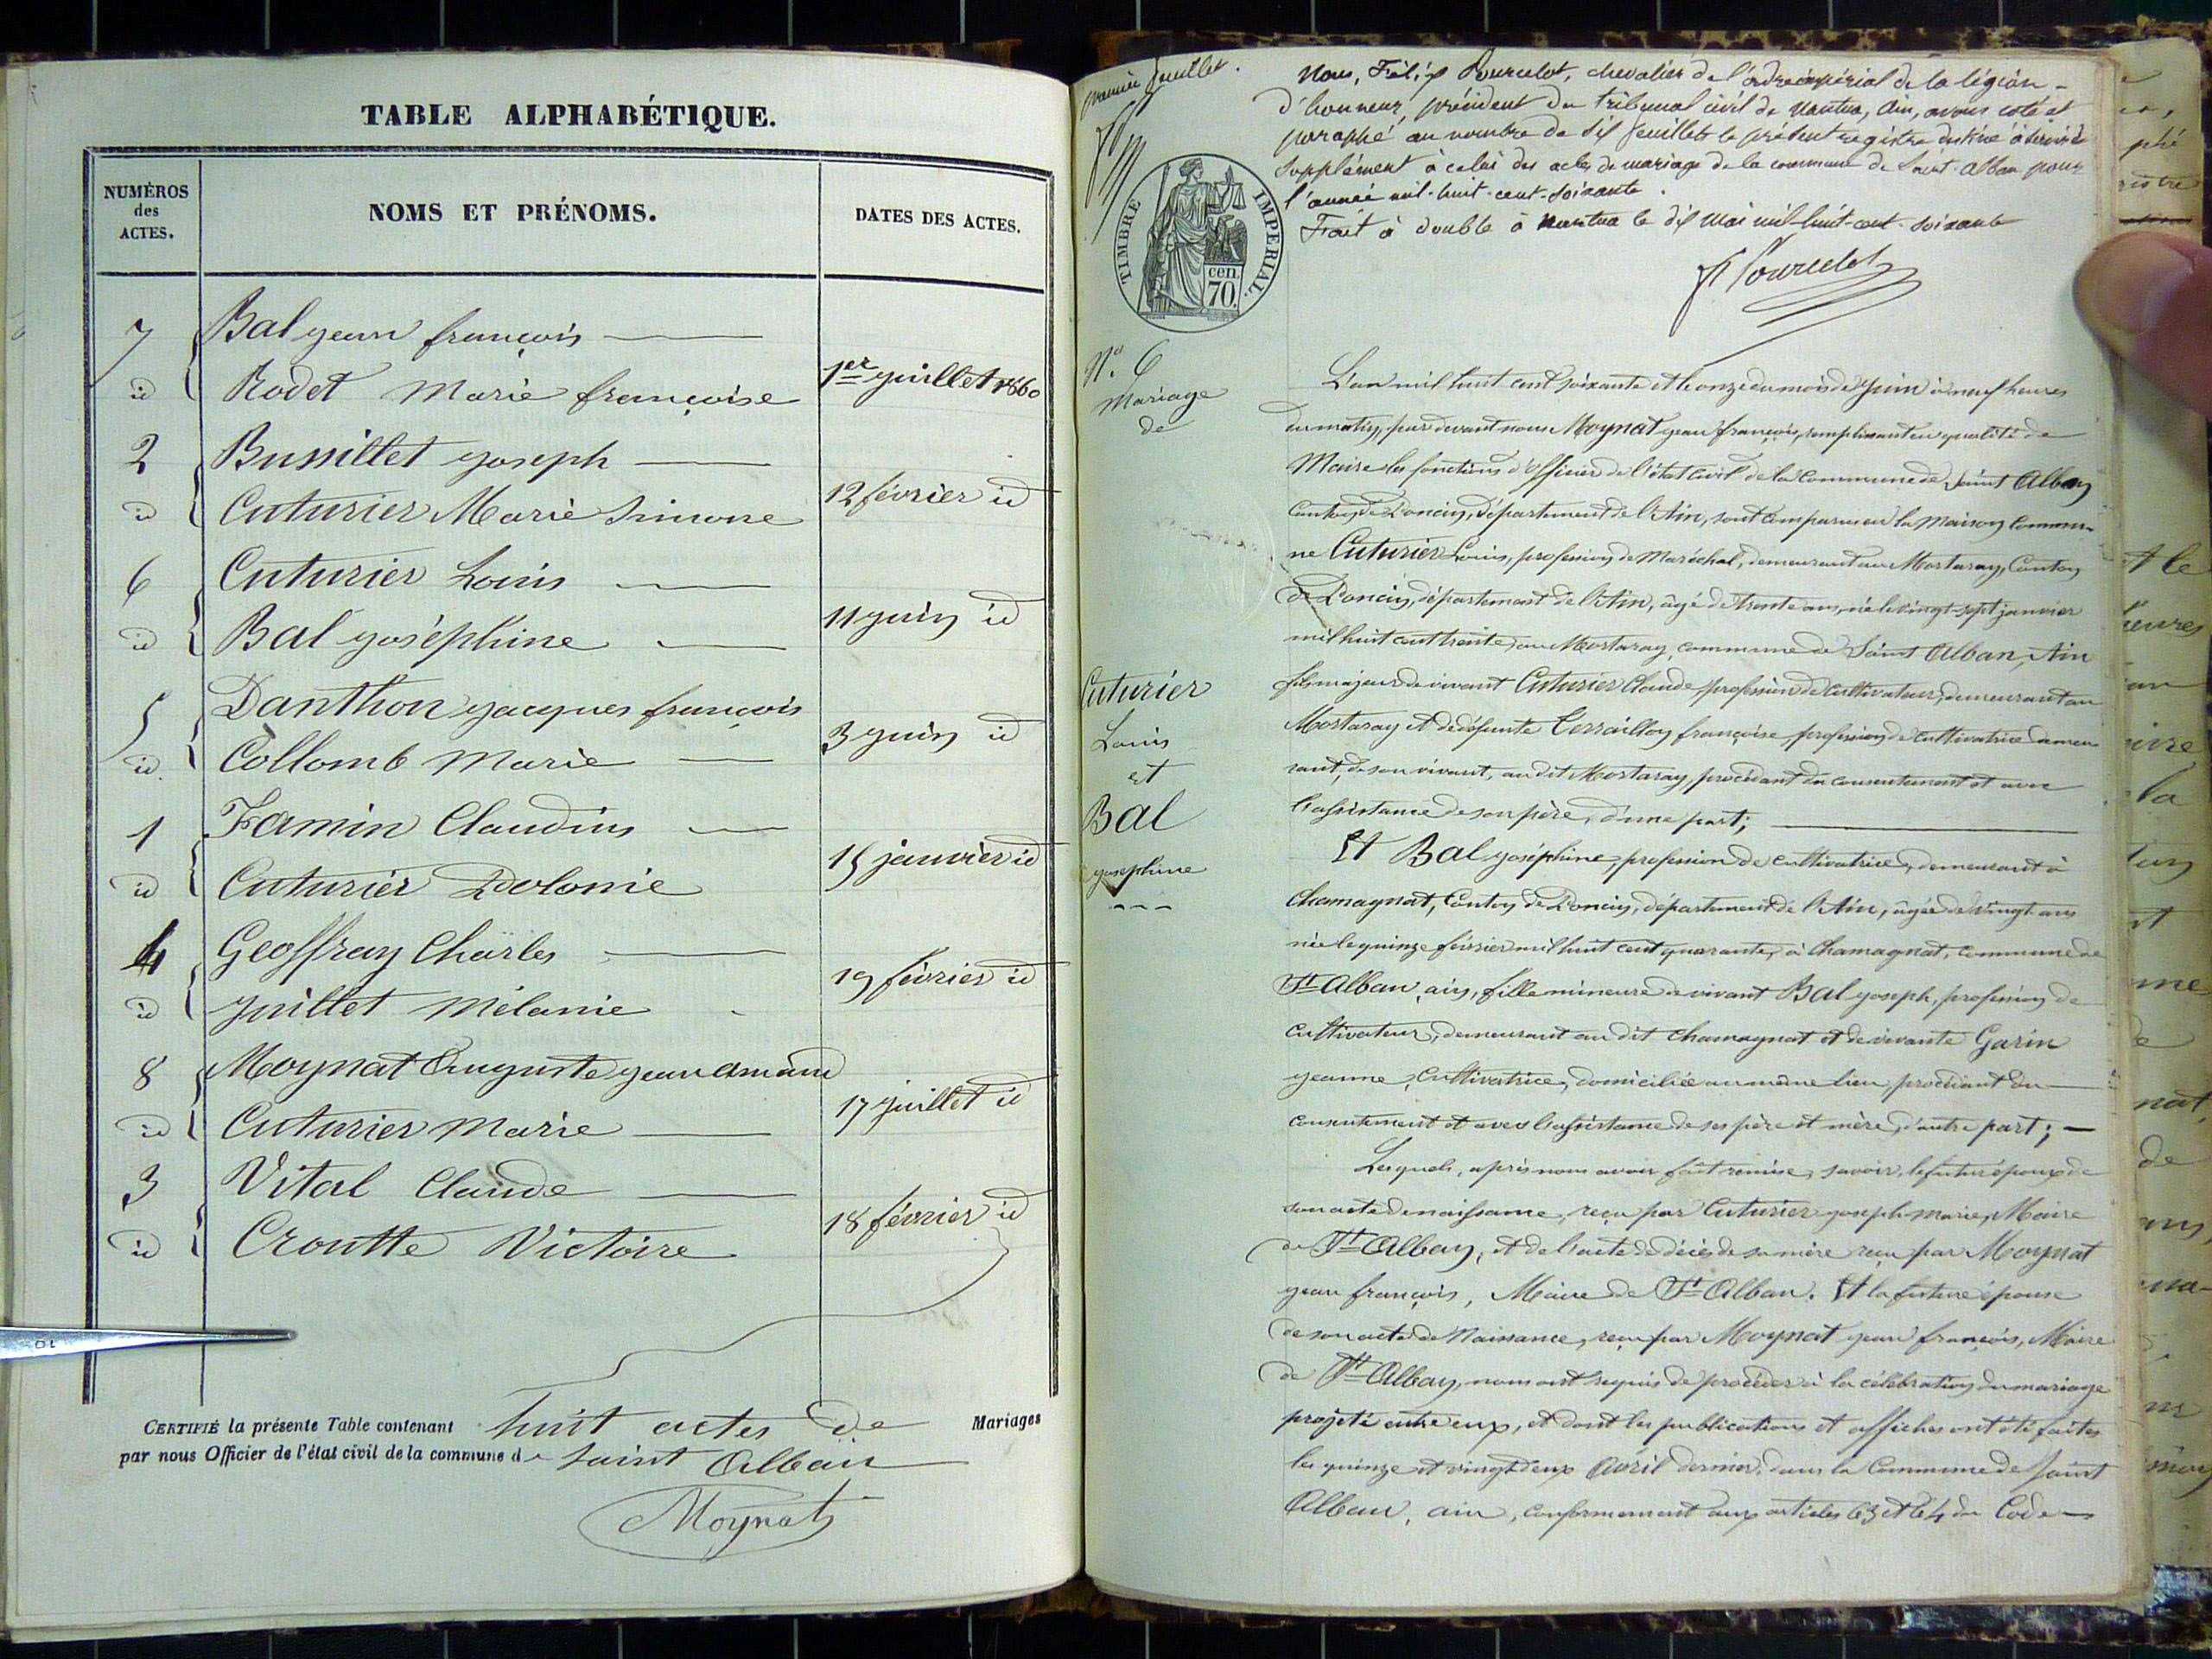 TABLE ALPHABÉTIQUE.
NUMÉROS
des
ACTES.
NOMS ET PRÉNOMS.
DATES DES ACTES.
7 Bal jean françois
id Rodet Marie françoise
1er juillet 1860
2 Bussillet joseph
id Cuturier Marie Simone
12 février id
6 Cuturier Louis
id Bal joséphine
11 juin id
5 Danthon jacques françois
id. Collomb Marie
3 juin id
1 Famin Claudius
id Cuturier Polonie
15 janvier id
4 Geoffray Charles
id juillet Mélanie
19 février id
8 Moynat Auguste jean
id Cuturier Marie
17 juillet id
3 Vital Claude
id Croutte Victoire
18 février id
CERTIFIÉ la présente Table contenant huit actes de Mariages
par nous Officier de l'état civil de la commune de Saint Alban
Moynat
premier feuillet.
Nous, Félix Pourcelot, chevalier de l'ordre impérial de la légion-
d'honneur, président du tribunal civil de Nantua, Ain, avons coté et
paraphé au nombre de six feuillets le présent registre destiné à servir de
supplément à celui des actes de mariage de la commune de Saint-Alban pour
l'année mil-huit-cent-soixante.
Fait à double à Nantua le dix mai mil-huit-cent-soixante
F Pourcelot
TIMBRE IMPÉRIAL.
cen.
70.
No. 6
Mariage
de
Cuturier
Louis
et
Bal
josephine
L'an mil huit cent soixante et le onze du mois de Juin à neuf heures
du matin, par devant nous Moynat jean françois, remplissant en qualité de
Maire les fonctions d'Officier de l'état civil de la Commune de Saint Alban
Canton de Poncin, département de l'Ain, sont comparus en la Maison Commu-
ne Cuturier Louis, profession de Maréchal, demeurant au Mortaray, Canton
de Poncin, département de l'Ain, âgé de trente ans, né le vingt-sept janvier
mil huit cent trente, au Mortaray, commune de Saint Alban, Ain
fils majeur de vivant Cuturier Claude, profession de Cultivateur, demeurant au
Mortaray et de défunte Terraillon françoise, profession de Cultivatrice demeu-
rant, de son vivant, au dit Mortaray, procédant du consentement et avec
l'assistance de son père, d'une part;
Et Bal joséphine, profession de cultivatrice, demeurant à
Chamagnat, Canton de Poncin, département de l'Ain, âgée de vingt ans
née le quinze février mil huit cent quarante, à Chamagnat, Commune de
St Alban, ain, fille mineure de vivant Bal joseph, profession de
cultivateur, demeurant au dit Chamagnat et de vivante Garin
jeanne, Cultivatrice, domiciliée au même lieu, procédant du
consentement et avec l'assistance de ses père et mère, d'autre part;
Lesquels, après nous avoir fait remise, savoir, le futur époux de
son acte de naissance, reçu par Cuturier joseph-marie, Maire
de St Alban, et de l'acte de décès de sa mère reçu par Moynat
jean françois, Maire de St Alban. Et la future épouse
de son acte de Naissance, reçu par Moynat jean françois, Maire
de St Alban, nous ont requis de procéder à la célébration du mariage
projeté entre eux, et dont les publications et affiches ont été faites
les quinze et vingt deux Avril dernier, dans la Commune de Saint
Alban, ain, conformément aux articles 63 et 64 du Code